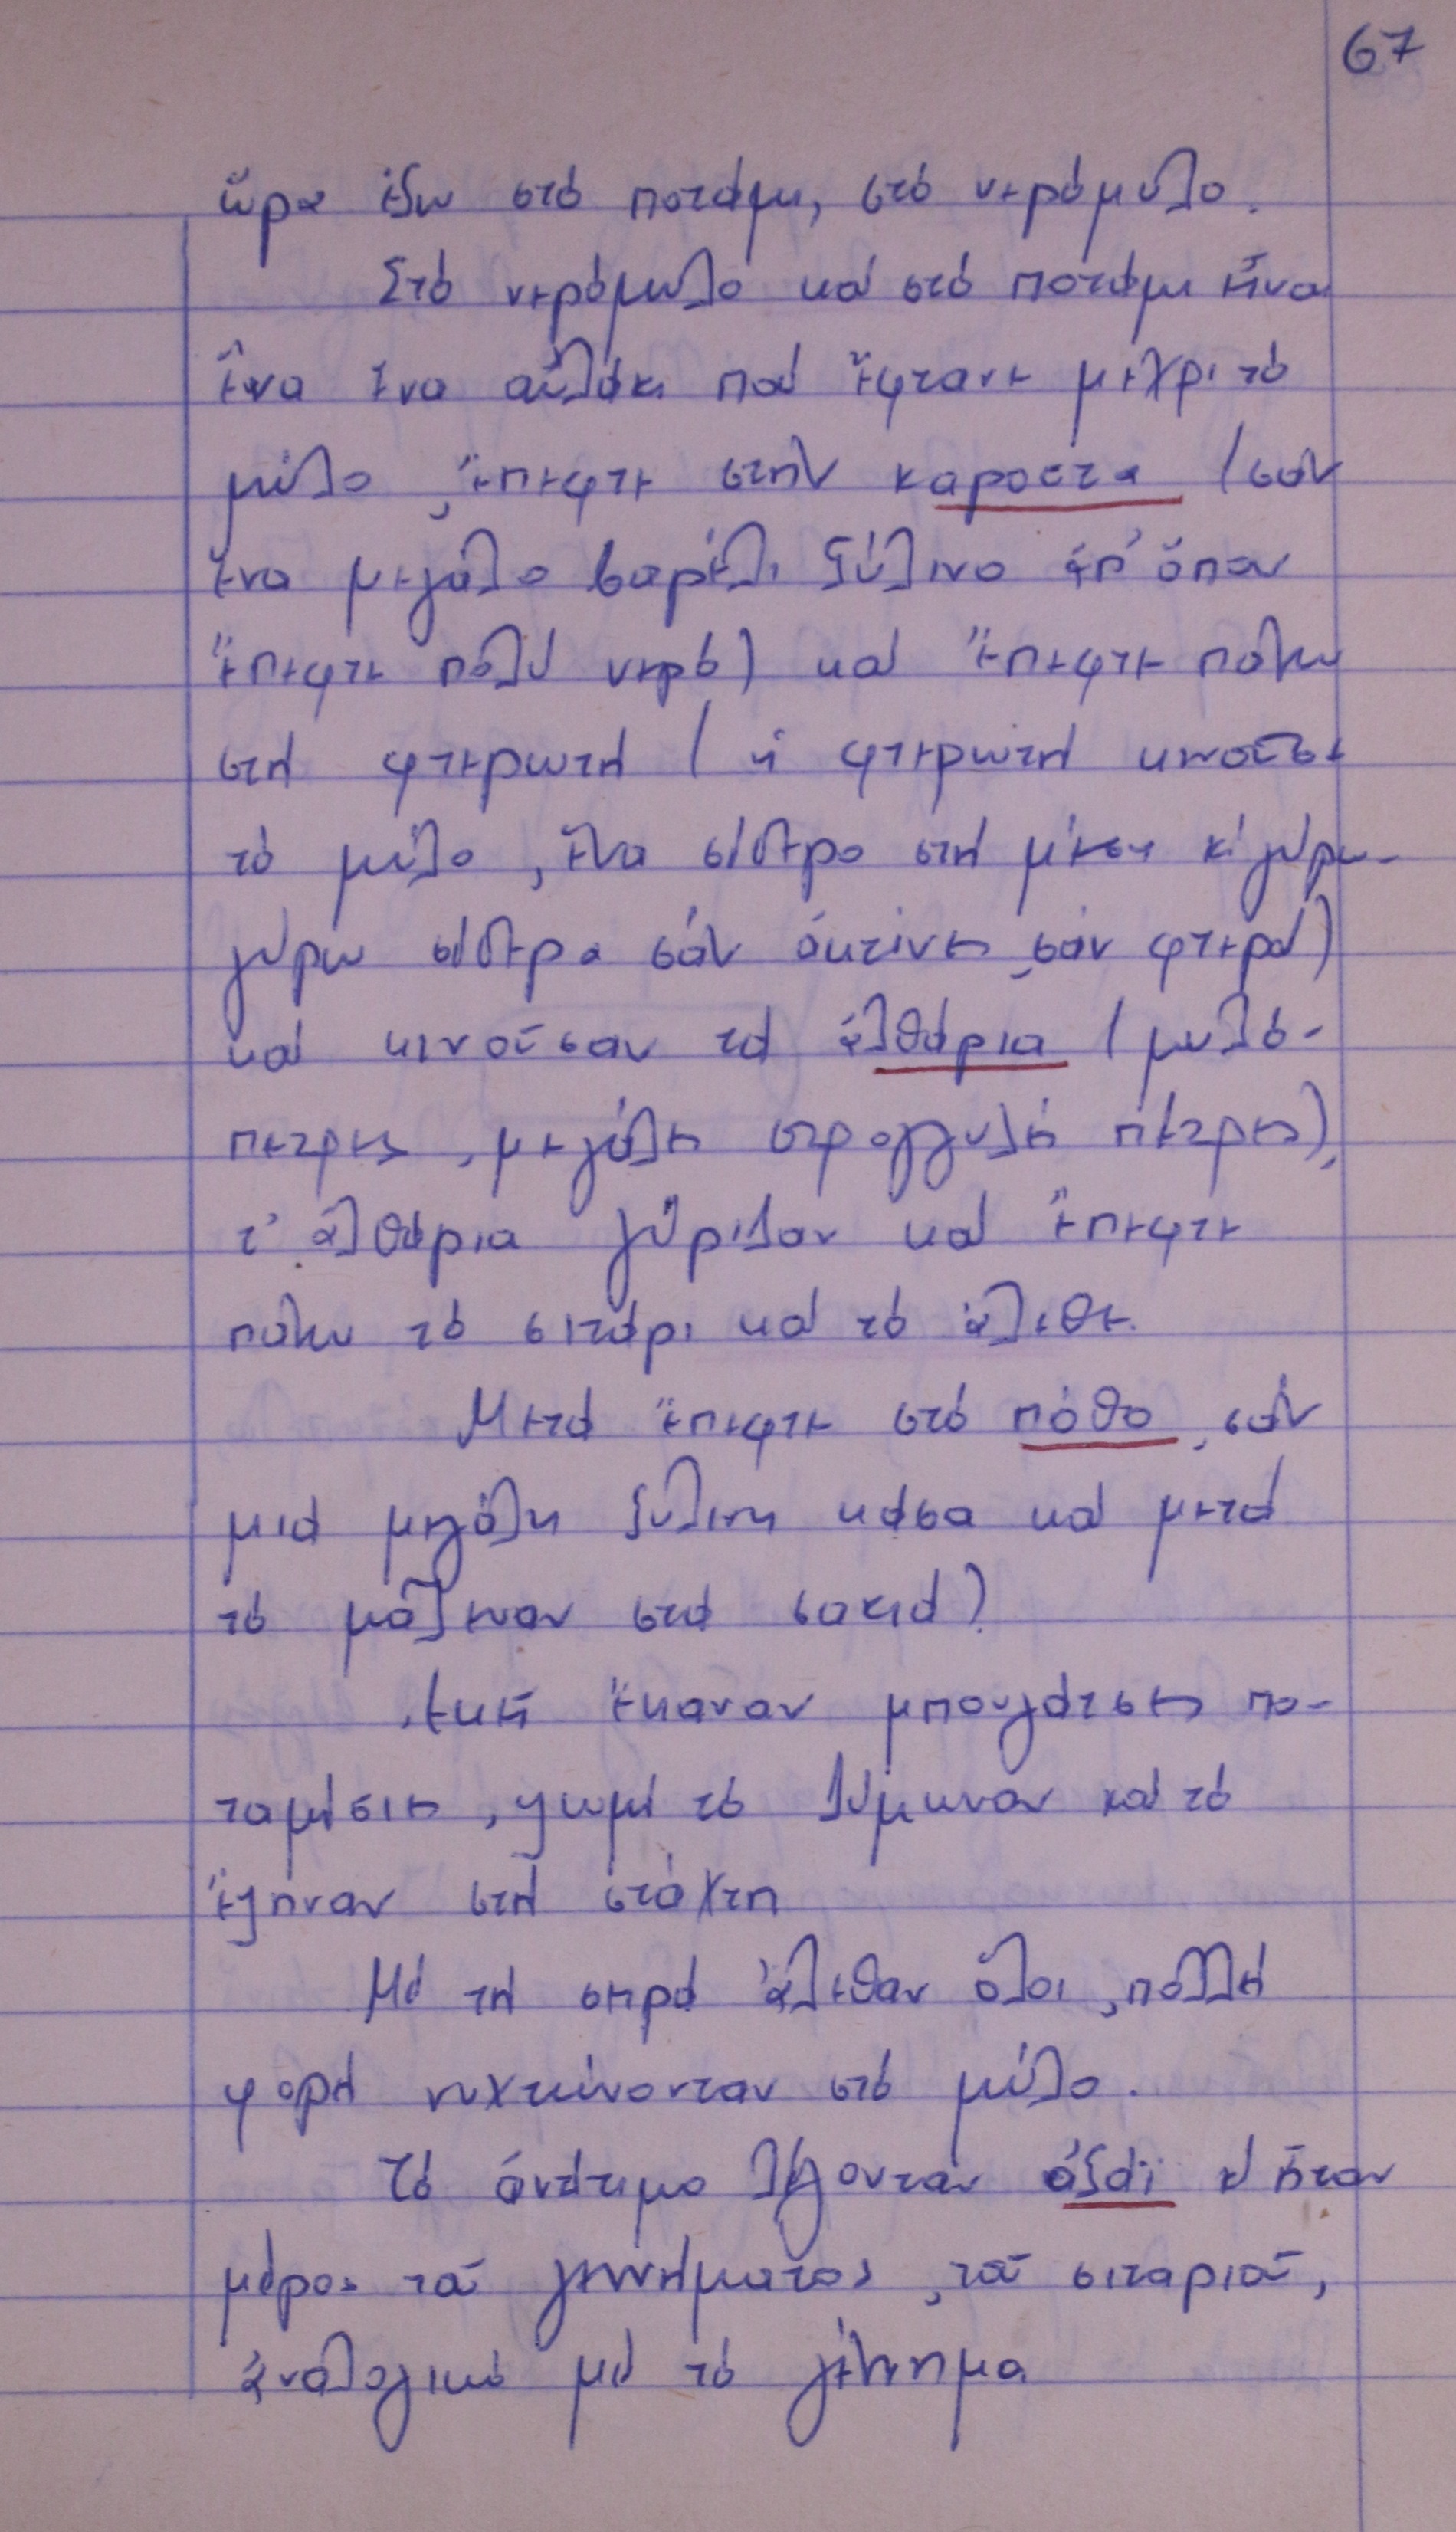 67
ὥρα ἐδῶ στό ποτάμι, στό νερόμυλο.
Στό νερόμυλο καί στό ποτάμι εἶναι
ἕνα ἕνα αὐλάκι πού ἔφτανε μέχρι τό
μύλο, ἔπεφτε στήν καρούτα (σάν
ἕνα μεγάλο βαρέλι ξύλινο ἀπ' ὅπου
ἔπεφτε πολύ νερό) καί ἔπεφτε πάνω
στή φτερωτή (ἡ φτερωτή κινοῦσε
τό μύλο, ἕνα σίδερο στή μέση κι γύρω-
γύρω σίδερα σάν ἀκτίνες, σάν φτερά)
καί κινοῦσαν τά ἀλθάρια (μυλό-
πετρες, μεγάλες στρογγυλές πέτρες),
τ' ἀλθάρια γύριζαν καί ἔπεφτε
πάνω τό σιτάρι καί τό ἄλεθε.
Μετά ἔπεφτε στό πόθο, σάν
μιά μεγάλη ξύλινη κάσα καί μετά
τό μάζευαν στά σακιά)
Ἐκεῖ ἔκαναν μπουγάτσες πο-
ταμίσιες, ψωμί τό ζύμωναν καί τό
ἔψηναν στή στάχτη
Μέ τή σειρά ἄλεθαν ὅλοι, πολλές
φορές νυχτώνονταν στό μύλο.
Τό ἀντίτιμο λέγονταν ἀξάι κ' ἦταν
μέρος τοῦ γεννήματος, τοῦ σιταριοῦ,
ἀναλογικό μέ τό γέννημα